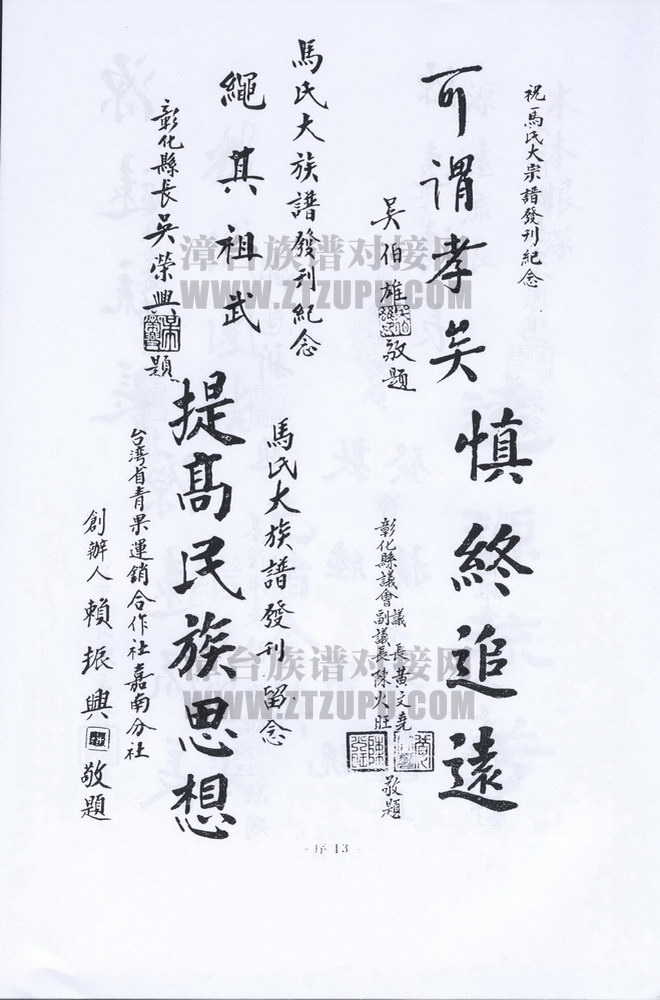 祝馬氏大宗譜發刊紀念
可謂孝矣
吳伯雄敬題
慎終追遠
彰化縣議會議長黃文堯
副議長陳火旺
敬題
馬氏大族譜發刊紀念
繩其祖武
彰化縣長吳榮興題
馬氏大族譜發刊留念
提高民族思想
台湾省青果運銷合作社嘉南分社
創辦人賴振興敬題
漳台族谱对接网
WWW.ZTZUPU.COM
漳台族谱对接网
WWW.ZTZUPU.COM
序13